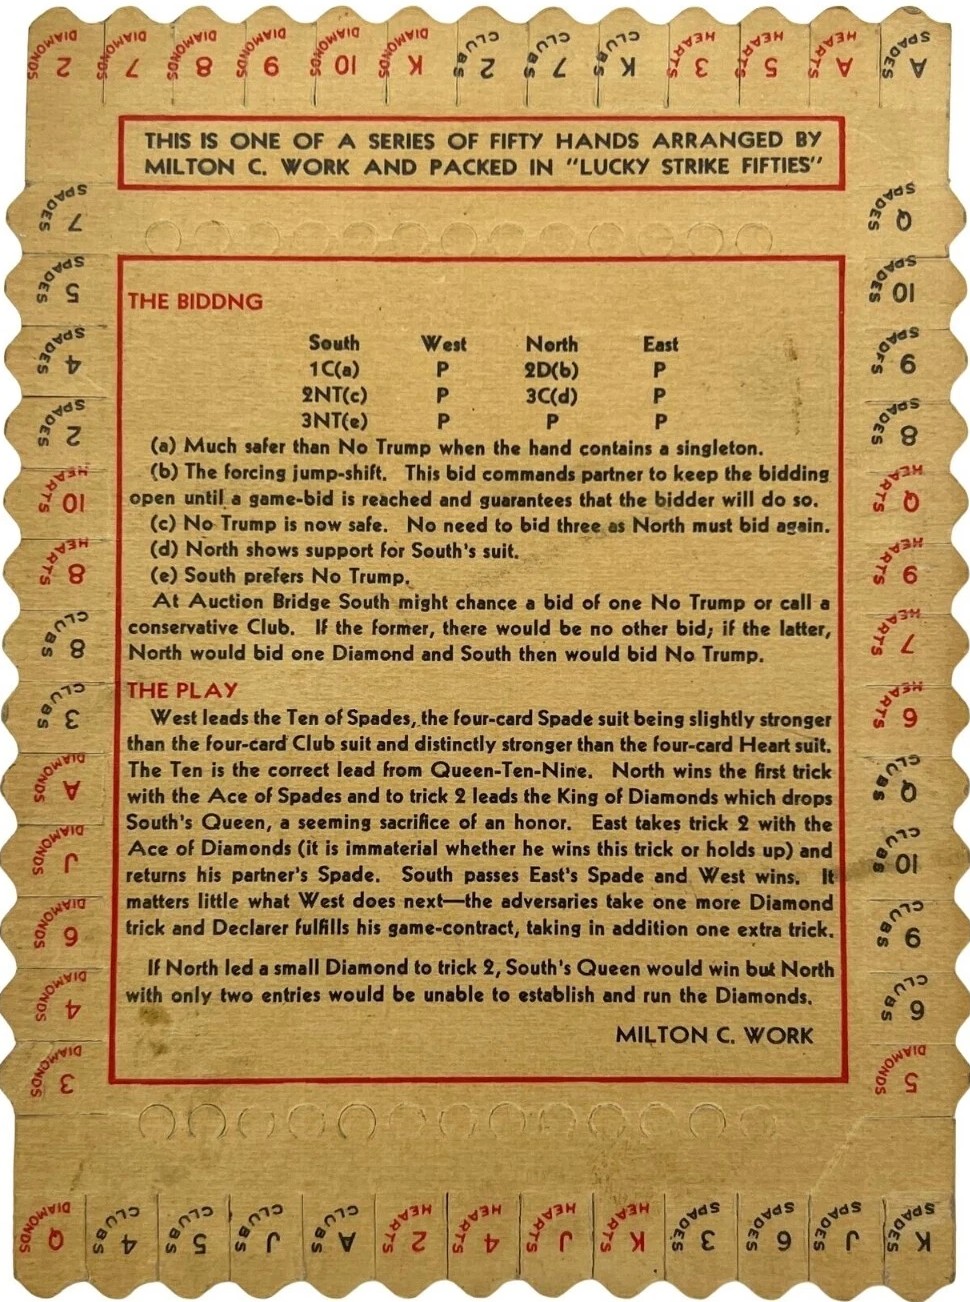 DIAMONDS 2 DIAMONDS 7 DIAMONDS 8 DIAMONDS 9 DIAMONDS 10 DIAMONDS K CLUBS 2 CLUBS 7 CLUBS K HEARTS 3 HEARTS 5 HEARTS A SPADES A
THIS IS ONE OF A SERIES OF FIFTY HANDS ARRANGED BY
MILTON C. WORK AND PACKED IN "LUCKY STRIKE FIFTIES"
SPADES 7
SPADES 5
SPADES 4
SPADES 2
HEARTS 10
HEARTS 8
CLUBS 8
CLUBS 3
DIAMONDS A
DIAMONDS J
DIAMONDS 6
DIAMONDS 4
DIAMONDS 3
THE BIDDNG
South West North East
1C(a) P 2D(b) P
2NT(c) P 3C(d) P
3NT(e) P P P
(a) Much safer than No Trump when the hand contains a singleton.
(b) The forcing jump-shift. This bid commands partner to keep the bidding
open until a game-bid is reached and guarantees that the bidder will do so.
(c) No Trump is now safe. No need to bid three as North must bid again.
(d) North shows support for South's suit.
(e) South prefers No Trump.
At Auction Bridge South might chance a bid of one No Trump or call a
conservative Club. If the former, there would be no other bid; if the latter,
North would bid one Diamond and South then would bid No Trump.
THE PLAY
West leads the Ten of Spades, the four-card Spade suit being slightly stronger
than the four-card Club suit and distinctly stronger than the four-card Heart suit.
The Ten is the correct lead from Queen-Ten-Nine. North wins the first trick
with the Ace of Spades and to trick 2 leads the King of Diamonds which drops
South's Queen, a seeming sacrifice of an honor. East takes trick 2 with the
Ace of Diamonds (it is immaterial whether he wins this trick or holds up) and
returns his partner's Spade. South passes East's Spade and West wins. It
matters little what West does next—the adversaries take one more Diamond
trick and Declarer fulfills his game-contract, taking in addition one extra trick.
If North led a small Diamond to trick 2, South's Queen would win but North
with only two entries would be unable to establish and run the Diamonds.
MILTON C. WORK
SPADES Q
SPADES 10
SPADES 9
SPADES 8
HEARTS Q
HEARTS 9
HEARTS 7
HEARTS 6
CLUBS Q
CLUBS 10
CLUBS 9
CLUBS 6
DIAMONDS 5
DIAMONDS Q CLUBS 4 CLUBS 5 CLUBS J CLUBS A HEARTS 2 HEARTS 4 HEARTS J HEARTS K SPADES 3 SPADES 6 SPADES J SPADES K